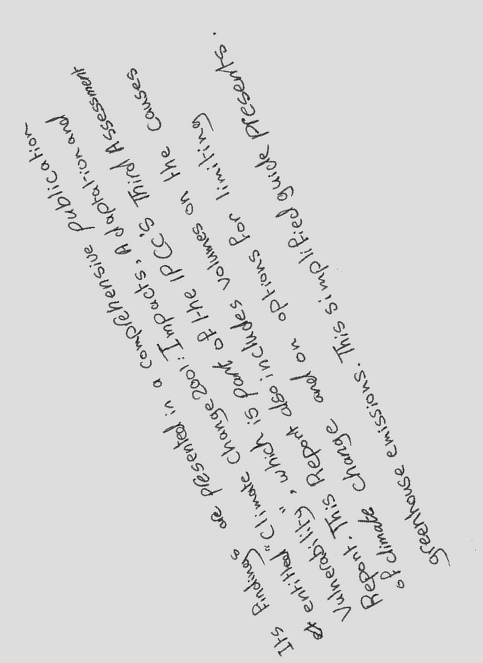 Its Findings are presented in a comprehensive publication
entitled "Climate change 2001: Impacts, Adaptation and
Vulnerability", which is part of the IPCC's Third Assessment
Report. This Report also includes volumes on the causes
of climate change and on options for limiting
greenhouse emissions. This simplified guide presents.